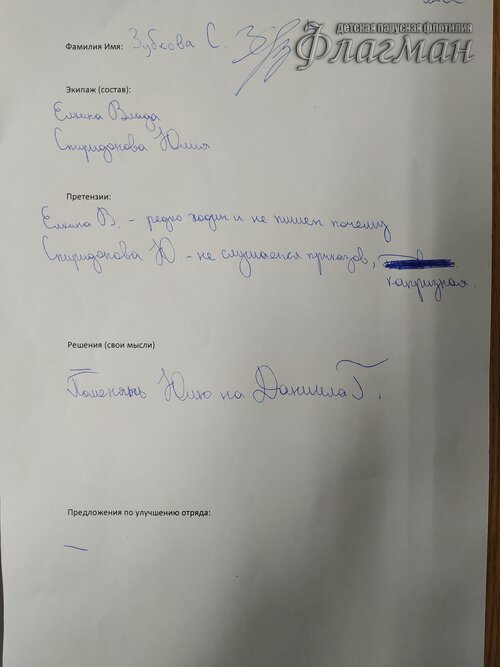 детская парусная флотилия
Флагман
Фамилия Имя: Зубкова С.
Экипаж (состав):
Елкина Влада
Спиридонова Юлия
Претензии:
Елкина В. - редко ходит и не пишет почему
Спиридонова Ю. - не слушается приказов,
капризная.
Решения (свои мысли)
Поменять Юлю на Даниила Г.
Предложения по улучшению отряда:
—